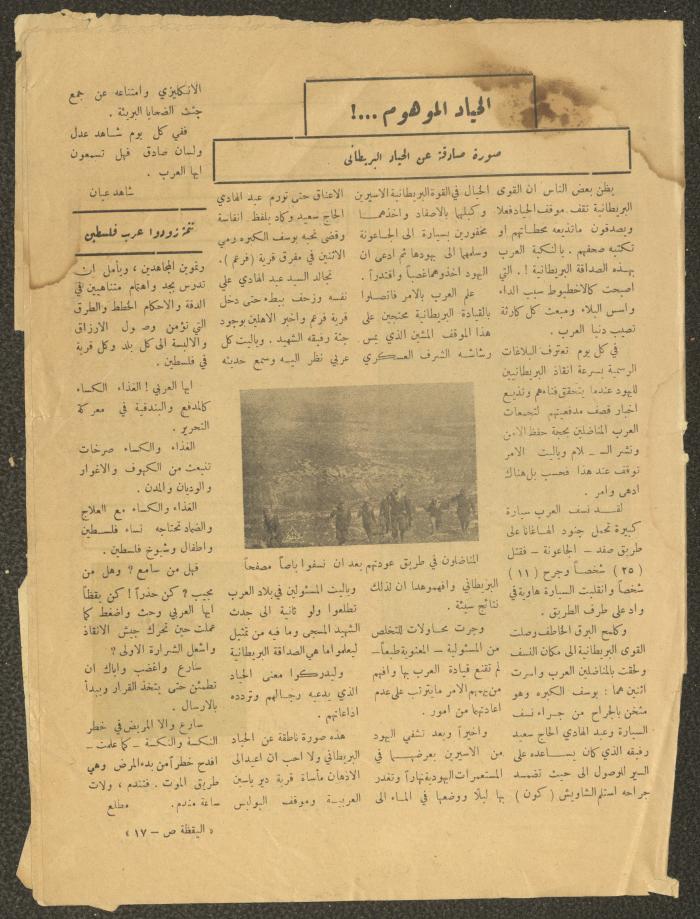 الحياد الموهوم ...!
صورة صادقة عن الحياد البريطانى
يظن بعض الناس ان القوى
البريطانية تقف موقف الحياد فعلا
ويصدقون ماتذيعه محطاتهم او
تكتبه صحفهم . يالنكبة العرب
بهذه الصداقة البريطانية ! . التي
اصبحت كالاخطبوط سبب الداء
واسس البلاء ومبعث كل كارثة
تصيب دنيا العرب .
في كل يوم نعترف البلاغات
الرسمية بسرعة انقاذ البريطانيين
لليهود عندما يتحقق فناءهم ونذيع
اخبار قصف مدفعيتهم لتجمعات
العرب المناضلين بحجة حفظ الامن
ونشر الســلام وياليت الامر
توقف عند هذا فحسب بل هناك
ادهى وامر .
لقــد نسف العرب سيارة
كبيرة تحمل جنود الهاغانا على
طريق صفد - الجاعونة - فقتل
( ٢٥ ) شخصاً وجرح ( ١١ )
شخصاً وانقلبت السيارة هاوية في
واد على طرف الطريق .
وكلمح البرق الخاطف وصلت
القوى البريطانية الى مكان النسف
ولحقت بالمناضلين العرب واسرت
اثنين هما : يوسف الكبره وهو
مثخن بالجراح من جراء نسف
السيارة وعبد الهادي الحاج سعيد
رفيقه الذي كان يســاعده على
السير للوصول الى حيث تضمد
جراحه استلم الشاويش ( كون )
الحيال في القوة البريطانية الاسيرين
وكبلهما بالاصفاد واخذهــا
مخفورين بسيارة الى الجــاعونة
وسلمهما الى يهودها ثم ادعى ان
اليهود اخذوهما غصباً واقتدراً .
علم العرب بالامر فاتصلوا
بالقيادة البريطانية محتجين على
هذا الموقف المشين الذي يمس
رشاشه الشرف العسكري
الاعناق حتى تورم عبد الهادي
الحاج سعيد وكاد يلفظ انفاسه
وقضى نحبه يوسف الكبره رمي
الاثنين في مفرق قرية ( فرعم ) .
تجالد السيد عبد الهادي على
نفسه وزحف ببطء حتى دخل
قرية فرعم واخبر الاهلين بوجود
جثة رفيقه الشهيد . وياليت كل
عربي نظر اليــه وسمع حديثه
المناضلون في طريق عودتهم بعد ان نسفوا باصاً مصفحاً
البريطاني وافهموهما ان لذلك
نتائج سيئة .
وجرت محــاولات للتخلص
من المسئولية - المعنوية طبعاً-
لم تقنع قيادة العرب بها وافهم
من يهمهم الامر مايترتب على عدم
اعادتهما من امور .
واخيراً وبعد تشفي اليهود
من الاسيرين بعرضهــما في
المستعمرات اليهودية نهاراً وتغدر
بها ليلاً ووضعها في المــاء الى
وياليت المسئولين في بلاد العرب
تطلعوا ولو ثانية الى جدث
الشهيد المسجى وما فيه من تمثيل
ليعلموا ما هي الصداقة البريطانية
وليدركوا معنى الحياد
الذي يدعيه رجــالهم وتردده
اذاعاتهم .
هذه صورة ناطقة عن الحياد
البريطاني ولا احب ان اعيد الى
الاذهان مأساة قرية دير ياسين
العربيــة وموقف البوليس
الانكليزي وامتناعه عن جمع
جثث الضحايا البريئة .
ففي كل يوم شاهد عدل
ولسان صادق فهل تسمعون
ايها العرب .
شاهد عيان
تتمة زودوا عرب فلسطين
وتموين المجاهدين ، ويأمل ان
تدرس بجد واهتمام متناهيين في
الدقة والاحكام الخطط والطرق
التي تؤمن وصــول الارزاق
والالبسة الى كل بلد وكل قرية
في فلسطين .
ايها العربي ! الغذاء الكساء
كالمدفع والبندقية في معركة
التحرير .
الغذاء والكساء صرخات
تنبعث من الكهوف والاغوار
والوديان والمدن .
الغذاء والكساء مع العلاج
والضماد تحتاجه نساء فلســطين
واطفال وشيوخ فلسطين .
فهل من سامع ؟ وهل من
مجيب ؟ كن حذراً ! كن يقظاً
ايها العربي وحث واضغط كما
عملت حين تحرك جيش الانقاذ
واشعل الشرارة الاولى ؟
سارع واغضب واياك ان
تطمئن حتى يتخذ القرار ويبدأ
بالارسال .
سارع والا المريض في خطر
النكسة والنكسة - كما علمت -
افدح خطراً من بدء المرض وهي
طريق الموت . فتندم ، ولات
ساعة مندم . مطلع
« اليقظة ص - ١٧ »